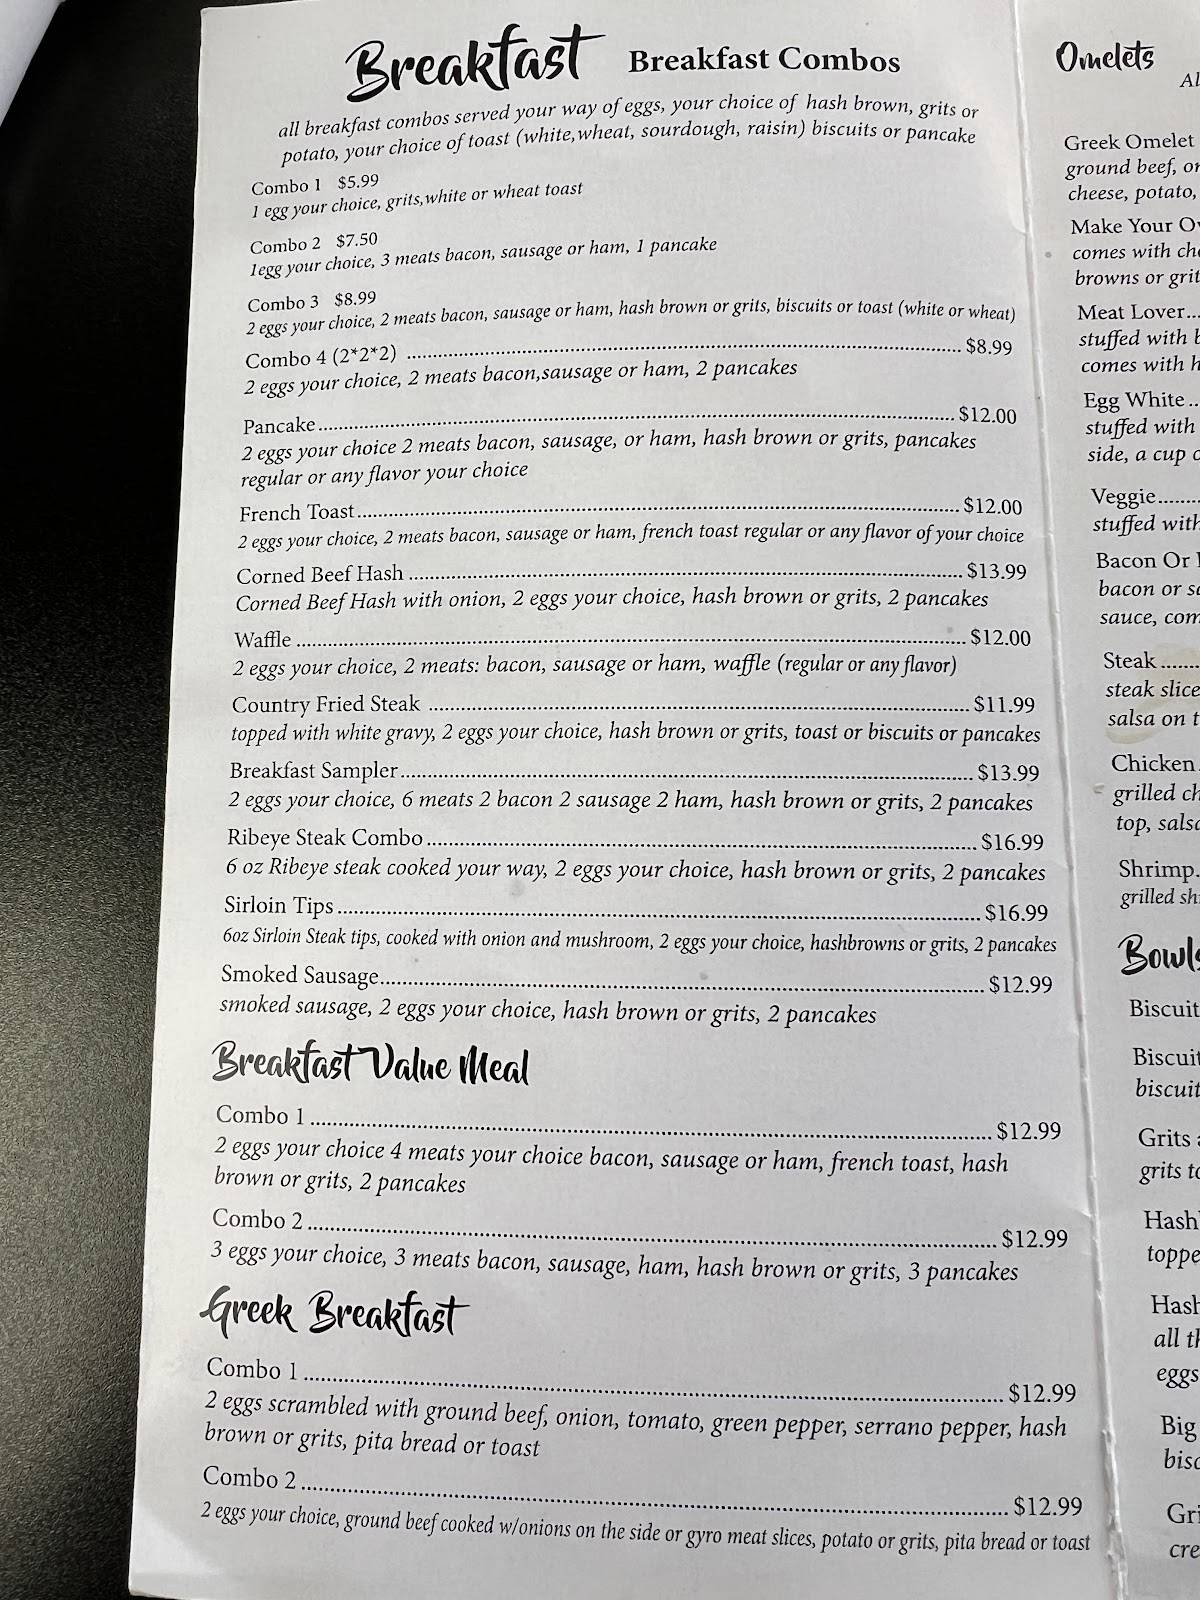 Breakfast Breakfast Combos
all breakfast combos served your way of eggs, your choice of hash brown, grits or
potato, your choice of toast (white,wheat, sourdough, raisin) biscuits or pancake
Combo 1 $5.99
1 egg your choice, grits,white or wheat toast
Combo 2 $7.50
1egg your choice, 3 meats bacon, sausage or ham, 1 pancake
Combo 3 $8.99
2 eggs your choice, 2 meats bacon, sausage or ham, hash brown or grits, biscuits or toast (white or wheat)
Combo 4 (2*2*2) ........ $8.99
2 eggs your choice, 2 meats bacon,sausage or ham, 2 pancakes
Pancake........ $12.00
2 eggs your choice 2 meats bacon, sausage, or ham, hash brown or grits, pancakes
regular or any flavor your choice
French Toast........ $12.00
2 eggs your choice, 2 meats bacon, sausage or ham, french toast regular or any flavor of your choice
Corned Beef Hash ........ $13.99
Corned Beef Hash with onion, 2 eggs your choice, hash brown or grits, 2 pancakes
Waffle ........ $12.00
2 eggs your choice, 2 meats: bacon, sausage or ham, waffle (regular or any flavor)
Country Fried Steak ........ $11.99
topped with white gravy, 2 eggs your choice, hash brown or grits, toast or biscuits or pancakes
Breakfast Sampler........ $13.99
2 eggs your choice, 6 meats 2 bacon 2 sausage 2 ham, hash brown or grits, 2 pancakes
Ribeye Steak Combo........ $16.99
6 oz Ribeye steak cooked your way, 2 eggs your choice, hash brown or grits, 2 pancakes
Sirloin Tips........ $16.99
6oz Sirloin Steak tips, cooked with onion and mushroom, 2 eggs your choice, hashbrowns or grits, 2 pancakes
Smoked Sausage........ $12.99
smoked sausage, 2 eggs your choice, hash brown or grits, 2 pancakes
Breakfast Value Meal
Combo 1 ........ $12.99
2 eggs your choice 4 meats your choice bacon, sausage or ham, french toast, hash
brown or grits, 2 pancakes
Combo 2 ........ $12.99
3 eggs your choice, 3 meats bacon, sausage, ham, hash brown or grits, 3 pancakes
Greek Breakfast
Combo 1 ........ $12.99
2 eggs scrambled with ground beef, onion, tomato, green pepper, serrano pepper, hash
brown or grits, pita bread or toast
Combo 2 ........ $12.99
2 eggs your choice, ground beef cooked w/onions on the side or gyro meat slices, potato or grits, pita bread or toast
Omelets
Greek Omelet
ground beef,
cheese, potato,
Make Your
comes with
browns or
Meat Lover...
stuffed with
comes with
Egg White ..
stuffed with
side, a cup
Veggie........
stuffed with
Bacon Or
bacon or
sauce,
Steak ........
steak
salsa on
Chicken
grilled
top,
Shrimp.
grilled
Bowls
Biscuit
Biscuit
biscuit
Grits
grits
all
eggs
Big